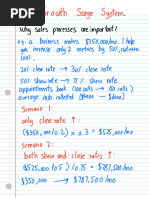 Growth Surge System
Why Sales processes are important?
e.g. a business makes $350,000/mo I help
can increase only 2 metrics by 50%, nutrien
100%.
20% close rate → 30% close rate
50% show rate → 75% show rate
appointments book (100 calls → 100 calls)
average cash collected ($7500 → $7500)
Scenario 1:
only close rate ↑:
($350,000/0.2) x 0.3 = $525,000
Scenario 2:
both show and close rates ↑:
($525,000/0.5) / 0.75 = $787,500/mo
$350,000 → $787,500/mo